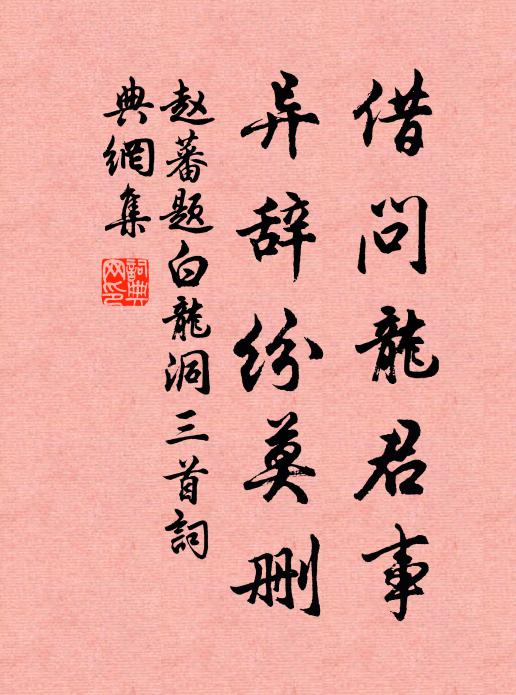 借问龍君事
异辞纷莫删
赵蕃题白龍洞三首詞
典網集
詞典
网印